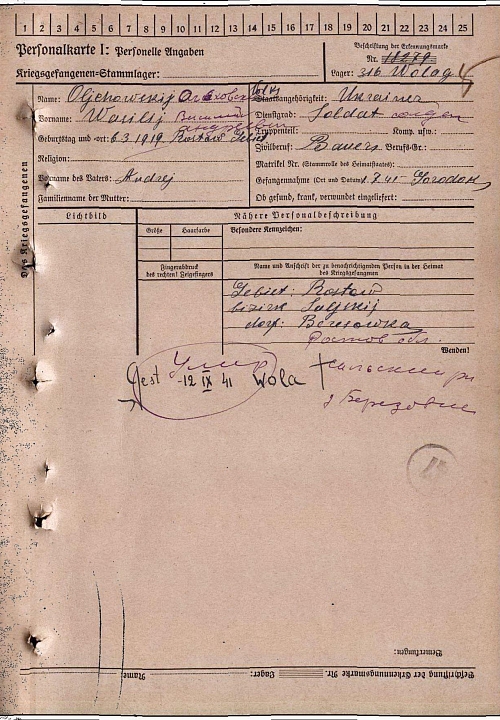 1 2 3 4 5 6 7 8 9 10 11 12 13 14 15 16 17 18 19 20 21 22 23 24 25
Personalkarte I: Personelle Angaben
Beschriftung der Erkennungsmarke
Nr. 11279
Kriegsgefangenen-Stammlager:
Lager: 316 Wolag
Des Kriegsgefangenen
Name: Oljchowskij
Staatsangehörigkeit: Ukrainer
Vorname: Wasilij Василий
Dienstgrad: Soldat солдат
Андреевич
Truppenteil: Komp. usw.:
Geburtstag und -ort: 6.3.1919 Rostow Gebiet
Zivilberuf: Bauer Berufs-Gr.:
Religion:
Matrikel Nr. (Stammrolle des Heimatstaates):
Vorname des Vaters: Andrej
Gefangennahme (Ort und Datum): 1.7.41 Gorodok
Familienname der Mutter:
Ob gesund, krank, verwundet eingeliefert:
Lichtbild
Nähere Personalbeschreibung
Größe
Haarfarbe
Besondere Kennzeichen:
Fingerabdruck
des rechten! Zeigefingers
Name und Anschrift der zu benachrichtigenden Person in der Heimat
des Kriegsgefangenen
Gebiet: Rostow
bezirk Saljskij
dorf: Beresowka
Ростов обл.
Wenden!
Умер
Gest -12 IX 41 Wola
Сальский р-н
д Березовка
Bemerkungen:
Beschriftung der Erkennungsmarke Nr. Lager: Name: